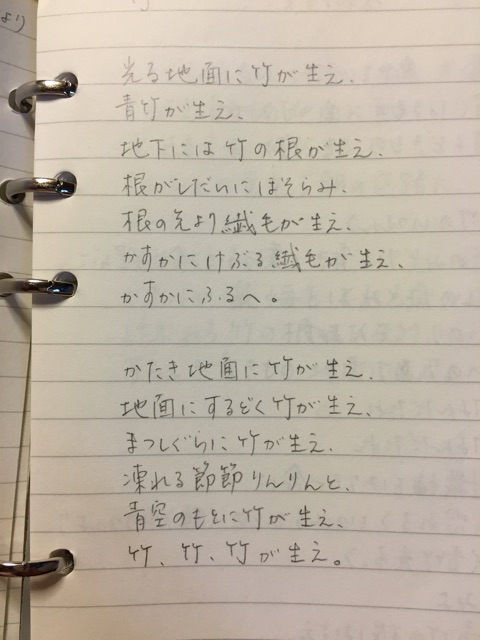 より
光る地面に竹が生え、
青竹が生え、
地下には竹の根が生え、
根がしだいにほそらみ、
根の先より繊毛が生え、
かすかにけぶる繊毛が生え、
かすかにふるへ。
かたき地面に竹が生え、
地面にするどく竹が生え、
まつしぐらに竹が生え、
凍れる節節りんりんと、
青空のもとに竹が生え、
竹、竹、竹が生え。